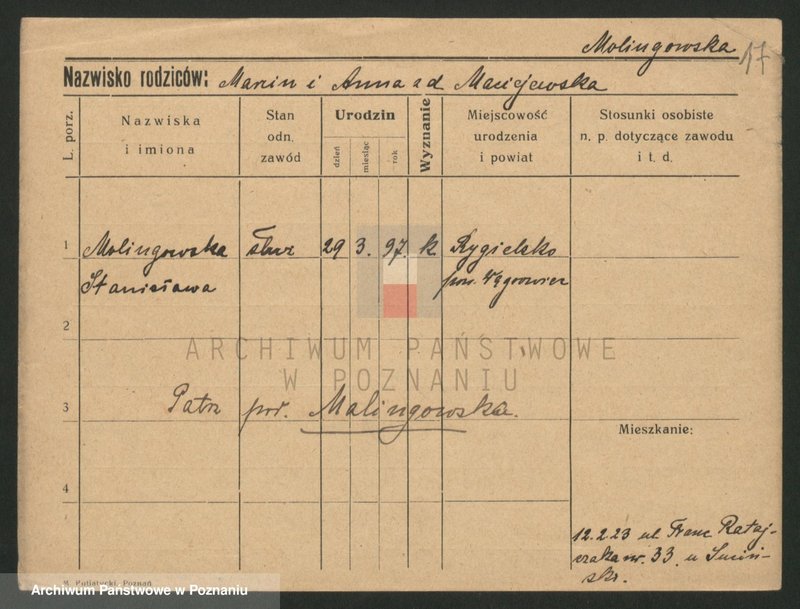 Molingowska
17
Nazwisko rodziców: Marcin i Anna z d Maciejewska
L. porz.
Nazwiska
i imiona
Stan
odn.
zawód
Urodzin
dzień
miesiąc
rok
Wyznanie
Miejscowość
urodzenia
i powiat
Stosunki osobiste
n. p. dotyczące zawodu
i t. d.
1 Molingowska służ 29 3. 97. k Rygielsko
Stanisława pow. Wągrowiec
2
ARCHIWUM PAŃSTWOWE
W POZNANIU
3 Patrz pod. Malingowska.
Mieszkanie:
4
12.2.23 ul. Franc Rataj-
czaka nr. 33. u
M. Putiatycki, Poznań
Archiwum Państwowe w Poznaniu